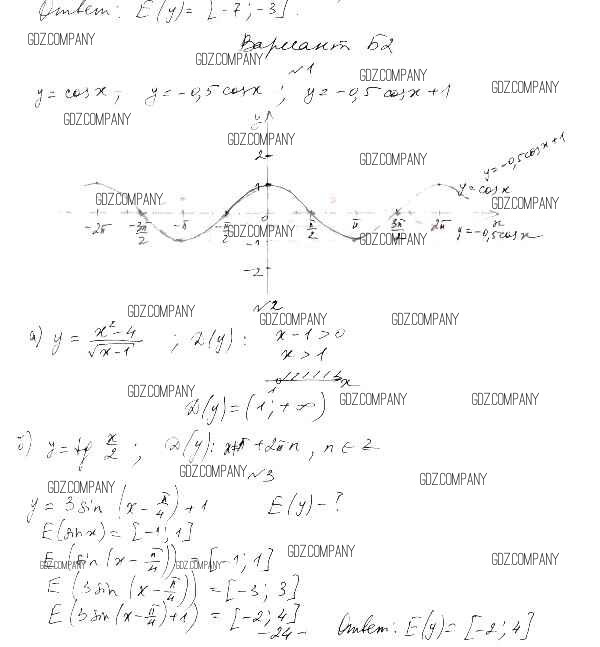 Ответ: E(y) = [-7; -3].
GDZ.COMPANY
Вариант Б2
GDZ.COMPANY
№1
GDZ.COMPANY
GDZ.COMPANY
y = cos x; y = -0,5 cos x; y = -0,5 cos x + 1
GDZ.COMPANY
y
GDZ.COMPANY
2
GDZ.COMPANY
y = -0,5cos x + 1
1
y = cos x
GDZ.COMPANY
GDZ.COMPANY
-2π -3π/2 -π -π/2 0 π/2 π 3π/2 2π x
GDZ.COMPANY
GDZ.COMPANY
y = -0,5cos x
-1
-2
№2
GDZ.COMPANY
GDZ.COMPANY
GDZ.COMPANY
а) y = (x² - 4)/√(x - 1); D(y): x - 1 > 0
x > 1
1 x
GDZ.COMPANY
GDZ.COMPANY
GDZ.COMPANY
D(y) = (1; +∞)
б) y = tg x/2; D(y): x ≠ π + 2πn, n ∈ Z
GDZ.COMPANY
№3
GDZ.COMPANY
GDZ.COMPANY
y = 3 sin (x - π/4) + 1 E(y) - ?
E(sin x) = [-1; 1]
E(sin (x - π/4)) = [-1; 1]
GDZ.COMPANY
GDZ.COMPANY
GDZ.COMPANY
GDZ.COMPANY
E(3 sin (x - π/4)) = [-3; 3]
E(3 sin (x - π/4) + 1) = [-2; 4]
-24-
Ответ: E(y) = [-2; 4]